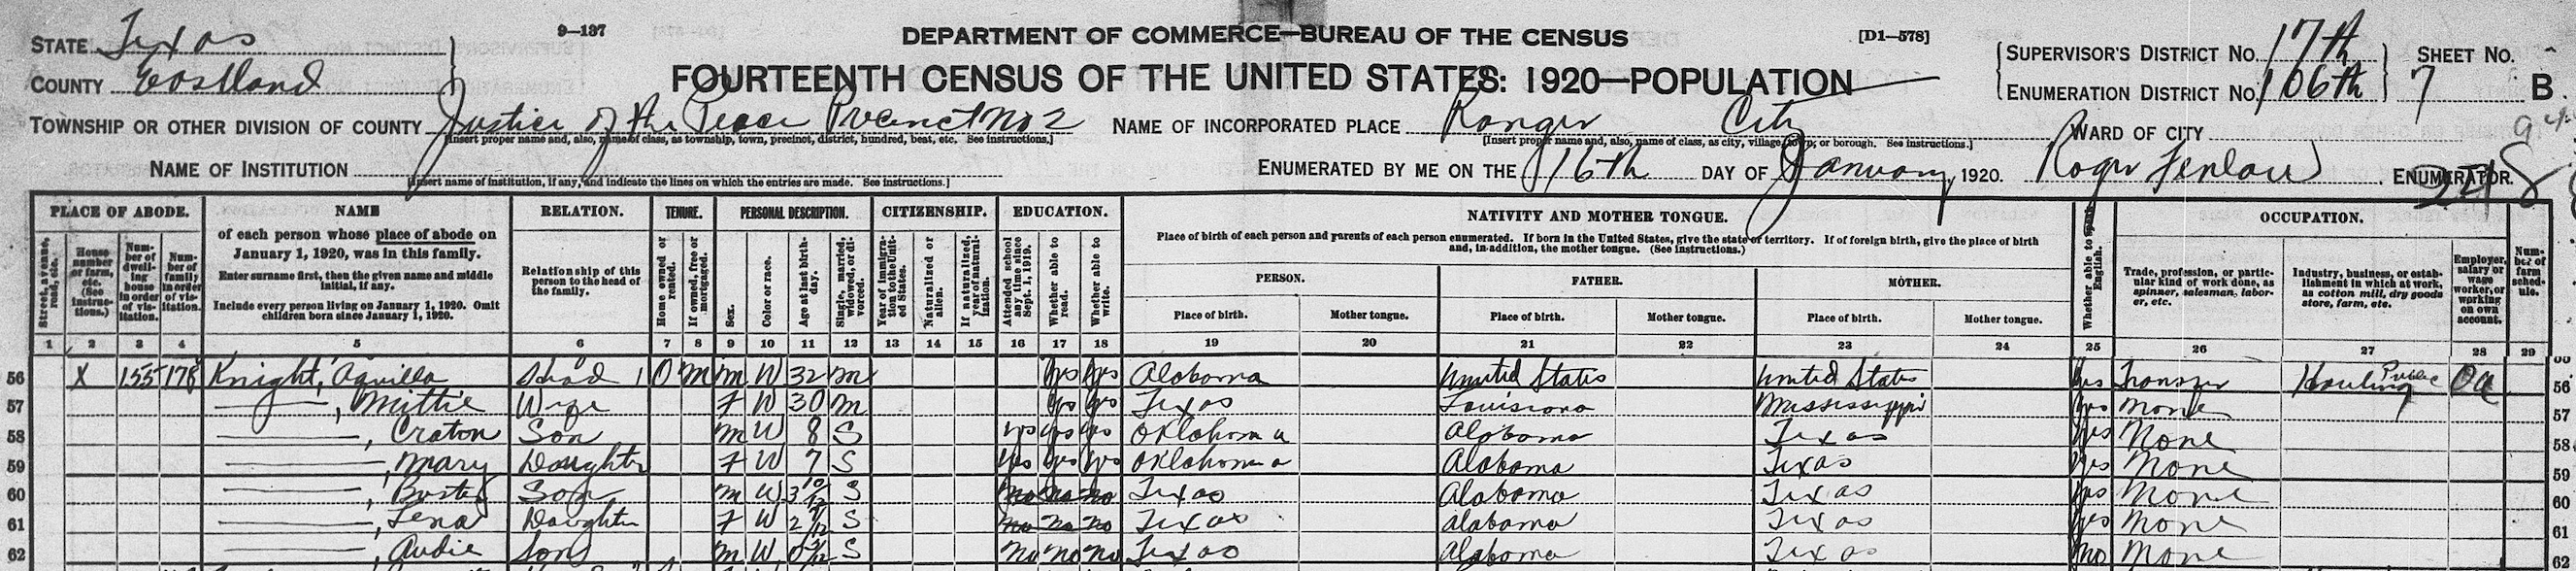 STATE Texas 9—137 DEPARTMENT OF COMMERCE—BUREAU OF THE CENSUS [D1—578] SUPERVISOR'S DISTRICT NO. 17th SHEET NO.
COUNTY Eastland FOURTEENTH CENSUS OF THE UNITED STATES: 1920—POPULATION ENUMERATION DISTRICT NO. 106th 7 B
TOWNSHIP OR OTHER DIVISION OF COUNTY Justice of the Peace Precinct No 2 NAME OF INCORPORATED PLACE Ranger City WARD OF CITY
[Insert proper name and, also, name of class, as township, town, precinct, district, hundred, beat, etc. See instructions.] [Insert proper name and, also, name of class, as city, village, town, or borough. See instructions.]
NAME OF INSTITUTION ENUMERATED BY ME ON THE 16th DAY OF January, 1920. Roger ENUMERATOR.
[Insert name of institution, if any, and indicate the lines on which the entries are made. See instructions.]
PLACE OF ABODE. NAME RELATION. TENURE. PERSONAL DESCRIPTION. CITIZENSHIP. EDUCATION. NATIVITY AND MOTHER TONGUE. OCCUPATION.
Street, avenue, road, etc.
House number or farm, etc. (See instructions.)
Number of dwelling house in order of visitation.
Number of family in order of visitation.
of each person whose place of abode on January 1, 1920, was in this family.
Enter surname first, then the given name and middle initial, if any.
Include every person living on January 1, 1920. Omit children born since January 1, 1920.
Relationship of this person to the head of the family.
Home owned or rented.
If owned, free or mortgaged.
Sex.
Color or race.
Age at last birthday.
Single, married, widowed, or divorced.
Year of immigration to the United States.
Naturalized or alien.
If naturalized, year of naturalization.
Attended school any time since Sept. 1, 1919.
Whether able to read.
Whether able to write.
Place of birth of each person and parents of each person enumerated. If born in the United States, give the state or territory. If of foreign birth, give the place of birth and, in addition, the mother tongue. (See instructions.)
PERSON. FATHER. MOTHER.
Place of birth. Mother tongue. Place of birth. Mother tongue. Place of birth. Mother tongue.
Whether able to speak English.
Trade, profession, or particular kind of work done, as spinner, salesman, laborer, etc.
Industry, business, or establishment in which at work, as cotton mill, dry goods store, farm, etc.
Employer, salary or wage worker, or working on own account.
Number of farm schedule.
1 2 3 4 5 6 7 8 9 10 11 12 13 14 15 16 17 18 19 20 21 22 23 24 25 26 27 28 29
56 X 155 178 Knight, Aquilla Head 1 O M M W 32 M Yes Yes Alabama United States United States Yes Hauling Public OA 56
57 —, Mittie Wife F W 30 M Yes Yes Texas Louisiana Mississippi Yes None 57
58 —, Craton Son M W 8 S Yes Yes Yes Oklahoma Alabama Texas Yes None 58
59 —, Mary Daughter F W 7 S Yes Yes Yes Oklahoma Alabama Texas Yes None 59
60 —, Buster Son M W 3 10/12 S No No No Texas Alabama Texas Yes None 60
61 —, Lena Daughter F W 2 S No No No Texas Alabama Texas Yes None 61
62 —, Audie Son M W S No No No Texas Alabama Texas No None 62